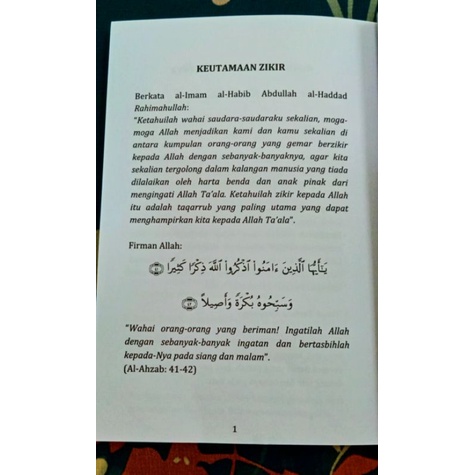 KEUTAMAAN ZIKIR
Berkata al-Imam al-Habib Abdullah al-Haddad
Rahimahullah:
"Ketahuilah wahai saudara-saudaraku sekalian, moga-
moga Allah menjadikan kami dan kamu sekalian di
antara kumpulan orang-orang yang gemar berzikir
kepada Allah dengan sebanyak-banyaknya, agar kita
sekalian tergolong dalam kalangan manusia yang tiada
dilalaikan oleh harta benda dan anak pinak dari
mengingati Allah Ta'ala. Ketahuilah zikir kepada Allah
itu adalah taqarrub yang paling utama yang dapat
menghampirkan kita kepada Allah Ta'ala".
Firman Allah:
يَـٰٓأَيُّهَا ٱلَّذِينَ ءَامَنُواْ ٱذۡكُرُواْ ٱللَّهَ ذِكۡرٗا كَثِيرٗا ٤١
وَسَبِّحُوهُ بُكۡرَةٗ وَأَصِيلًا ٤٢
"Wahai orang-orang yang beriman! Ingatilah Allah
dengan sebanyak-banyak ingatan dan bertasbihlah
kepada-Nya pada siang dan malam".
(Al-Ahzab: 41-42)
1